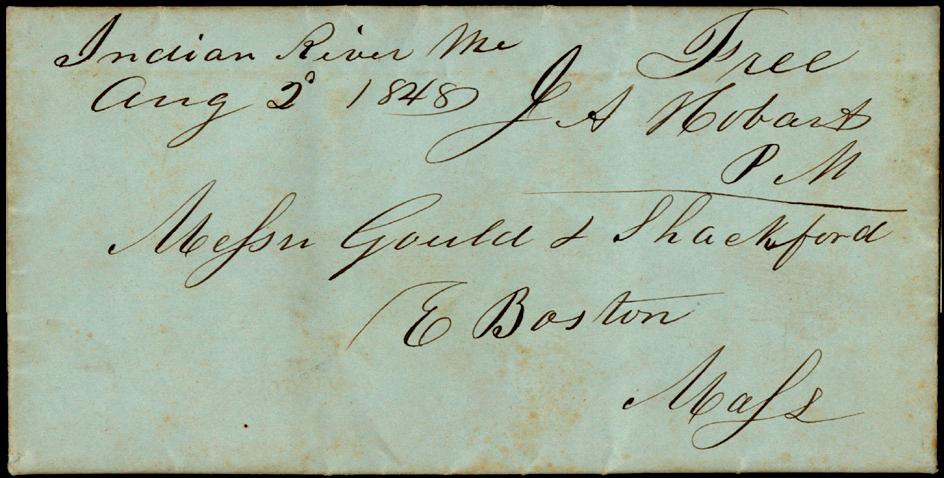 Indian River Me
Aug 2d 1848
Free
J A Hobart
P M
Messrs Gould & Shackford
E Boston
Mass